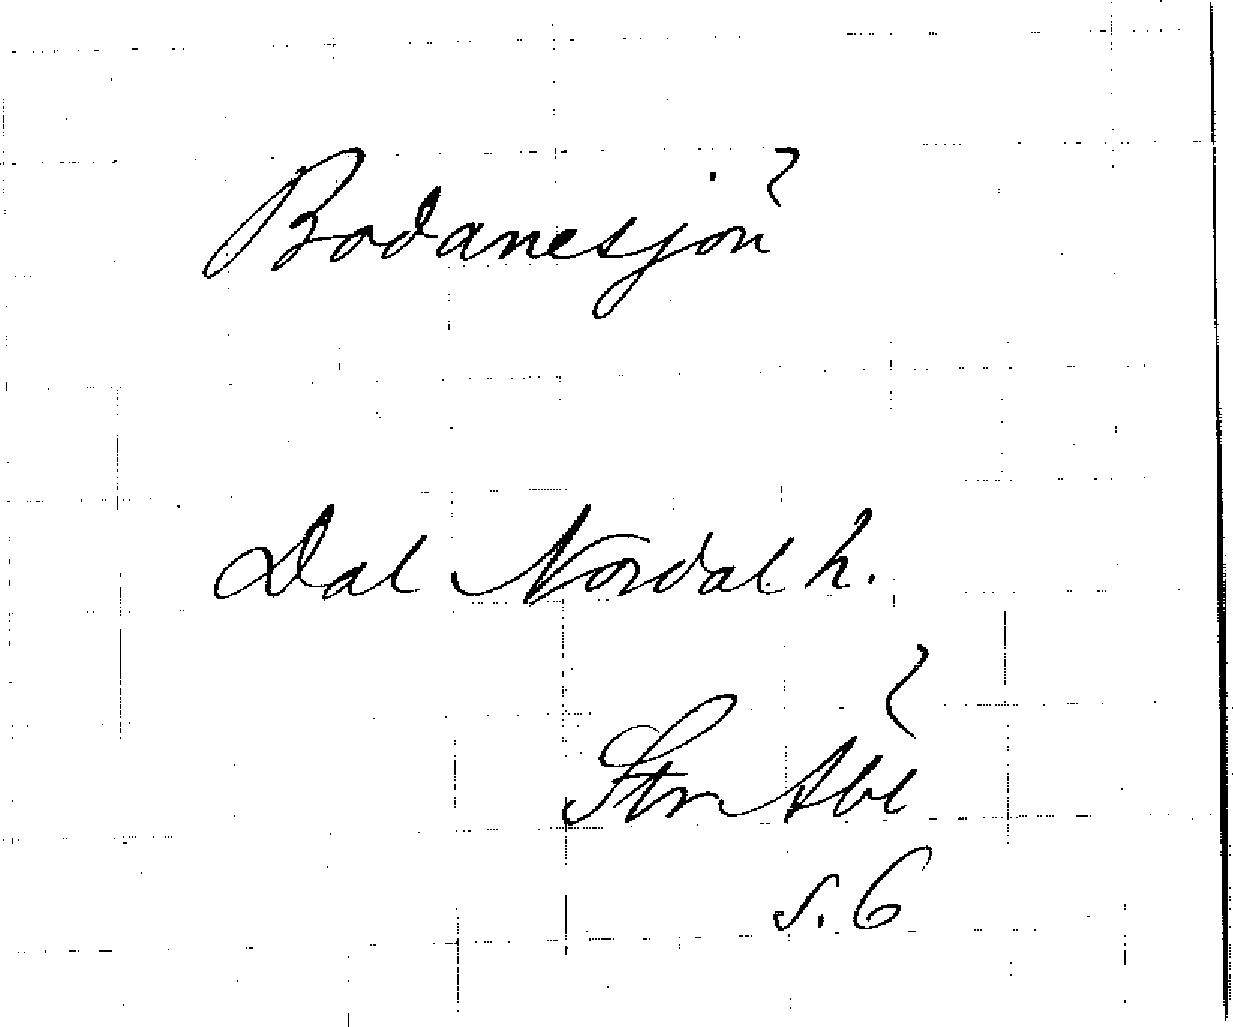 Bodanesjön
Dal Nordal h.
Stn Abl
s. 6